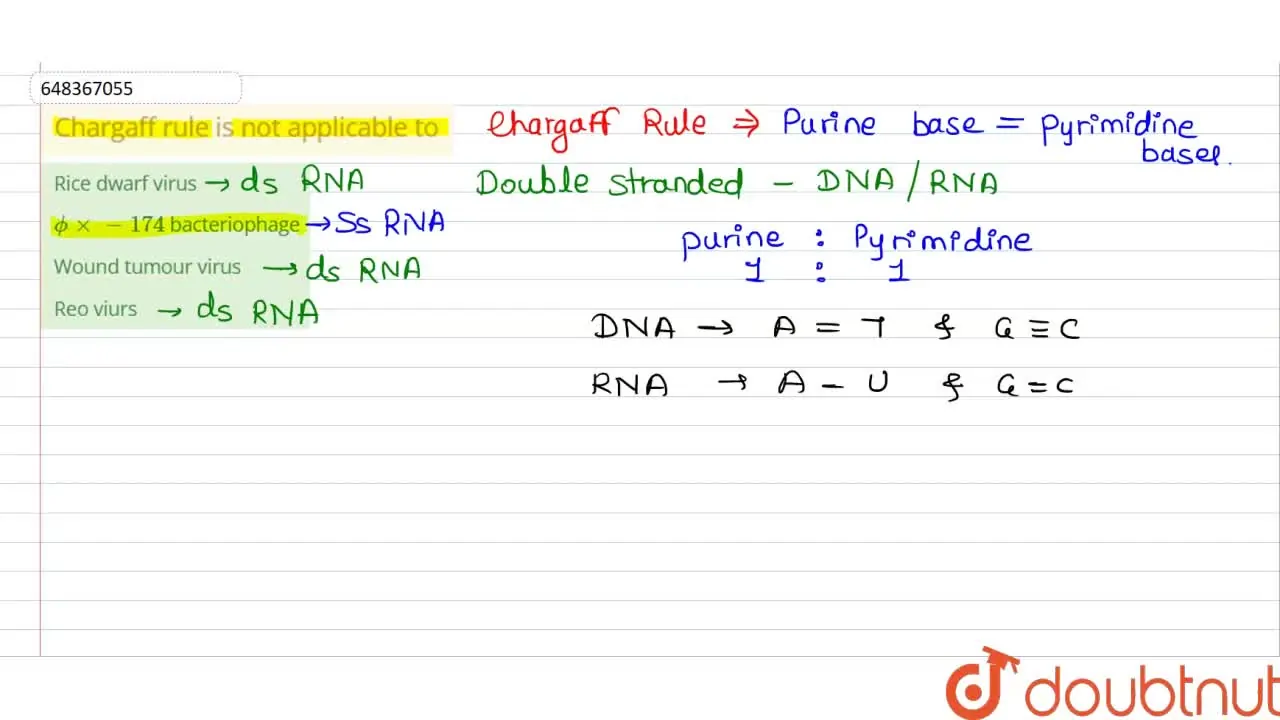 648367055
Chargaff rule is not applicable to
Chargaff Rule ⇒ Purine base = Pyrimidine
bases.
Rice dwarf virus → ds RNA
Double stranded - DNA / RNA
ϕ × - 174 bacteriophage → Ss RNA
purine : Pyrimidine
1 : 1
Wound tumour virus → ds RNA
Reo viurs → ds RNA
DNA → A = T & G ≡ C
RNA → A - U & G = C
doubtnut